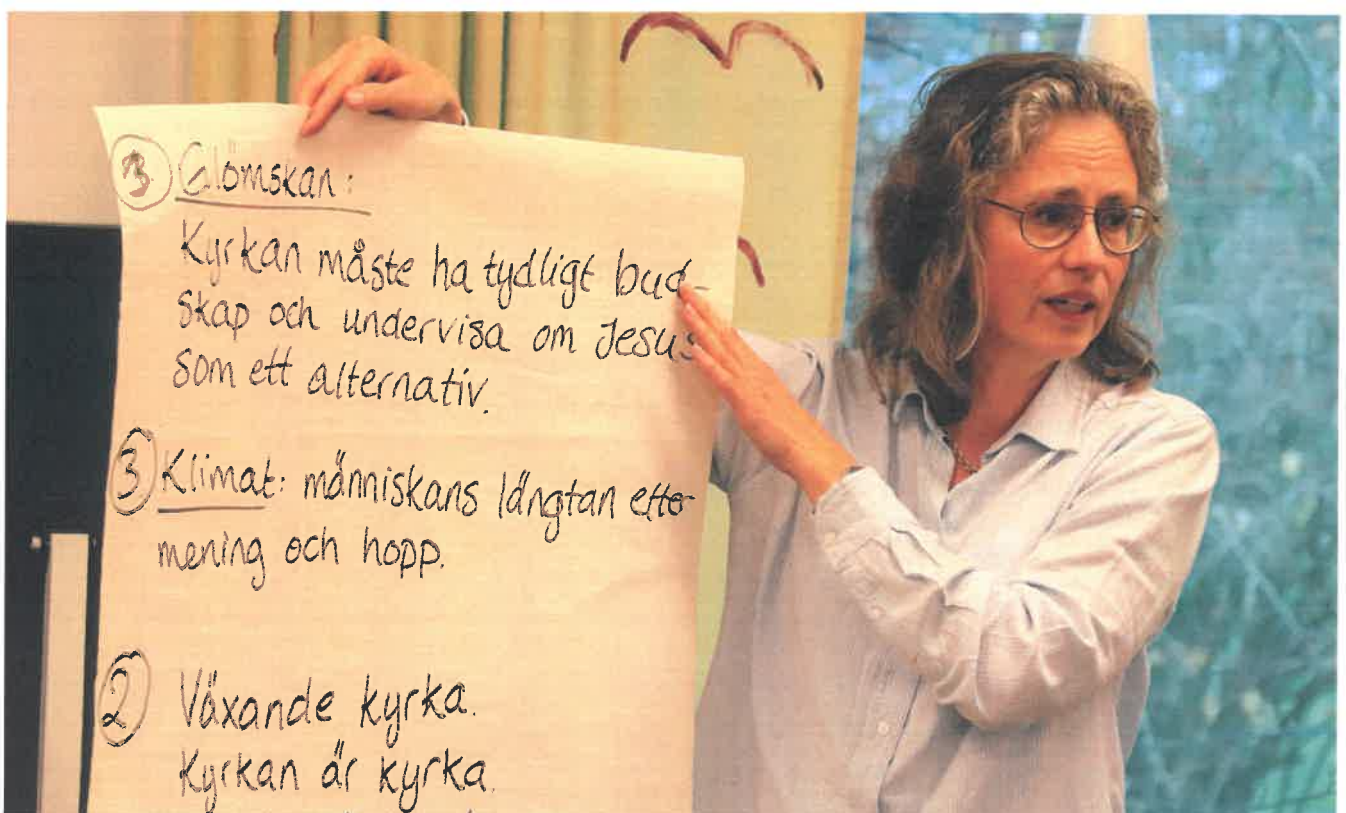 3 Glömskan:
Kyrkan måste ha tydligt bud-
skap och undervisa om Jesus
som ett alternativ.
3 Klimat: människans längtan efter
mening och hopp.
2 Växande kyrka.
Kyrkan är kyrka.